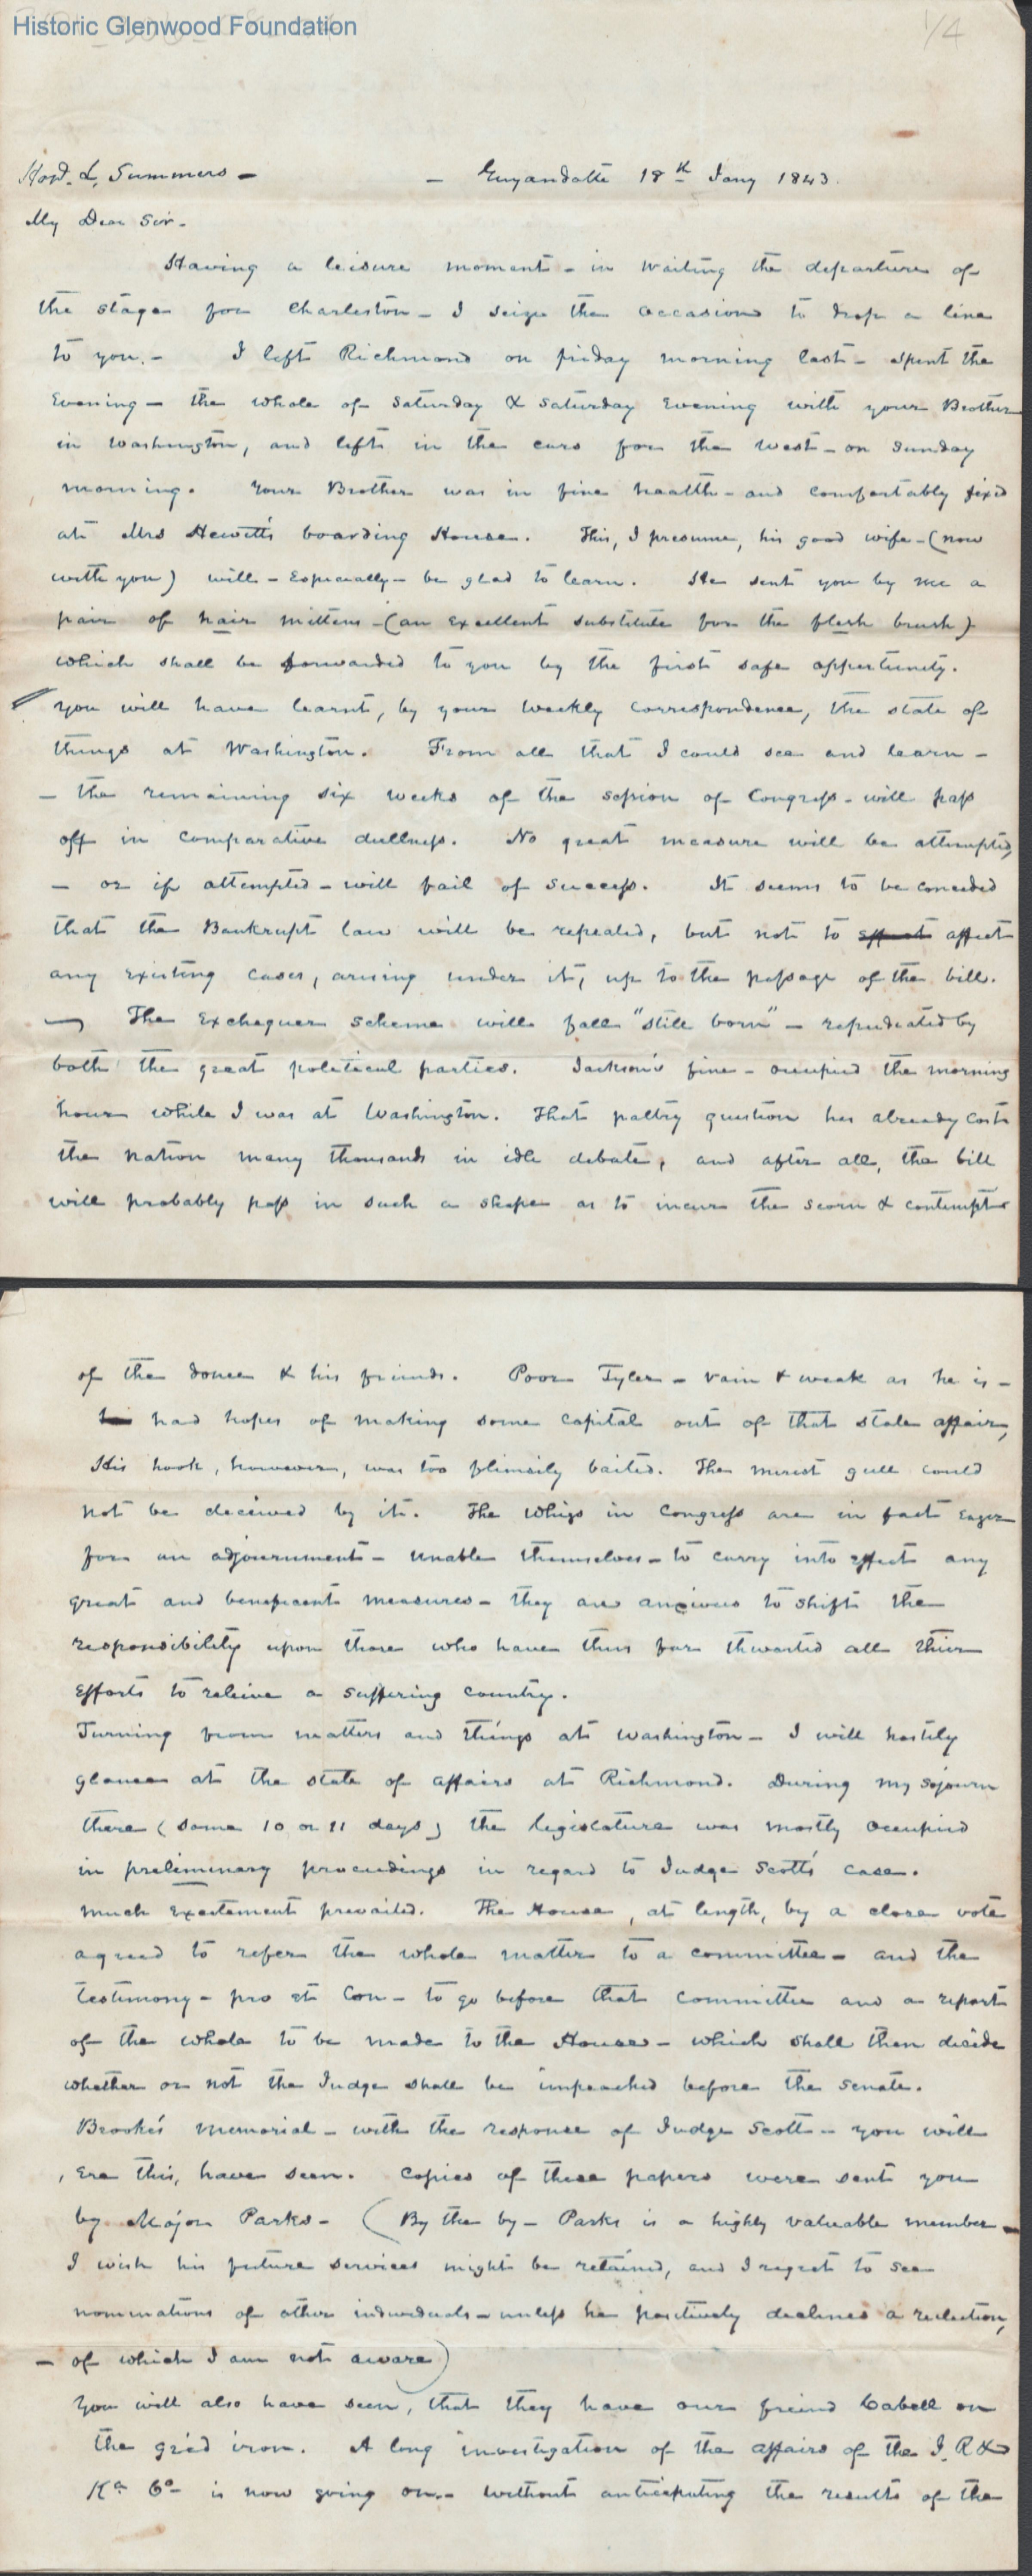 Historic Glenwood Foundation
1/4
Hond. L. Summers - - Guyandotte 18th Jany 1843.
My Dear Sir -
Having a leisure moment - in waiting the departure of
the stage for Charleston - I seize the occasion to drop a line
to you. - I left Richmond on friday morning last - spent the
Evening - the whole of Saturday & Saturday Evening with your Brother
in Washington, and left in the cars for the west - on Sunday
morning. Your Brother was in fine health - and comfortably fixed
at Mrs Hewitt's boarding House. This, I presume, his good wife - (now
with you) will - Especially - be glad to learn. He sent you by me a
pair of hair mittens - (an Excellent substitute for the flesh brush)
which shall be forwarded to you by the first safe opportunity.
You will have learnt, by your weekly correspondence, the state of
things at Washington. From all that I could see and learn -
- the remaining six weeks of the session of Congress - will pass
off in comparative dullness. No great measure will be attempted,
- or if attempted - will fail of success. It seems to be conceded
that the Bankrupt law will be repealed, but not to effect affect
any existing cases, arising under it, up to the passage of the bill.
- The Exchequer scheme will fall "still born" - repudiated by
both the great political parties. Jackson's fine - occupied the morning
hour while I was at Washington. That paltry question has already cost
the nation many thousands in idle debate, and after all, the bill
will probably pass in such a shape as to incur the scorn & contempt
of the donee & his friends. Poor Tyler - vain & weak as he is -
he had hopes of making some capital out of that stale affair,
His hook, however, was too flimsily baited. The merest gull could
not be deceived by it. The Whigs in Congress are in fact Eager
for an adjournment - unable themselves - to carry into effect any
great and beneficent measures - they are anxious to shift the
responsibility upon those who have thus far thwarted all their
Efforts to releive a suffering country.
Turning from matters and things at Washington - I will hastily
glance at the state of affairs at Richmond. During my sojourn
there (some 10 or 11 days) the legislature was mostly occupied
in preliminary proceedings in regard to Judge Scott's case.
much Excitement prevailed. The House, at length, by a close vote
agreed to refer the whole matter to a committee - and the
Testimony - pro et Con - to go before that committee and a report
of the whole to be made to the House - which shall then decide
whether or not the Judge shall be impeached before the Senate.
Brooke's Memorial - with the response of Judge Scott - you will
, Ere this, have seen. Copies of these papers were sent you
by Major Parks - (By the by - Parks is a highly valuable member -
I wish his future services might be retained, and I regret to see
nominations of other individuals - unless he positively declines a reelection,
- of which I am not aware)
You will also have seen, that they have our freind Cabell on
the grid iron. A long investigation of the affairs of the J. R &
Ka Co - is now going on - without anticipating the results of the